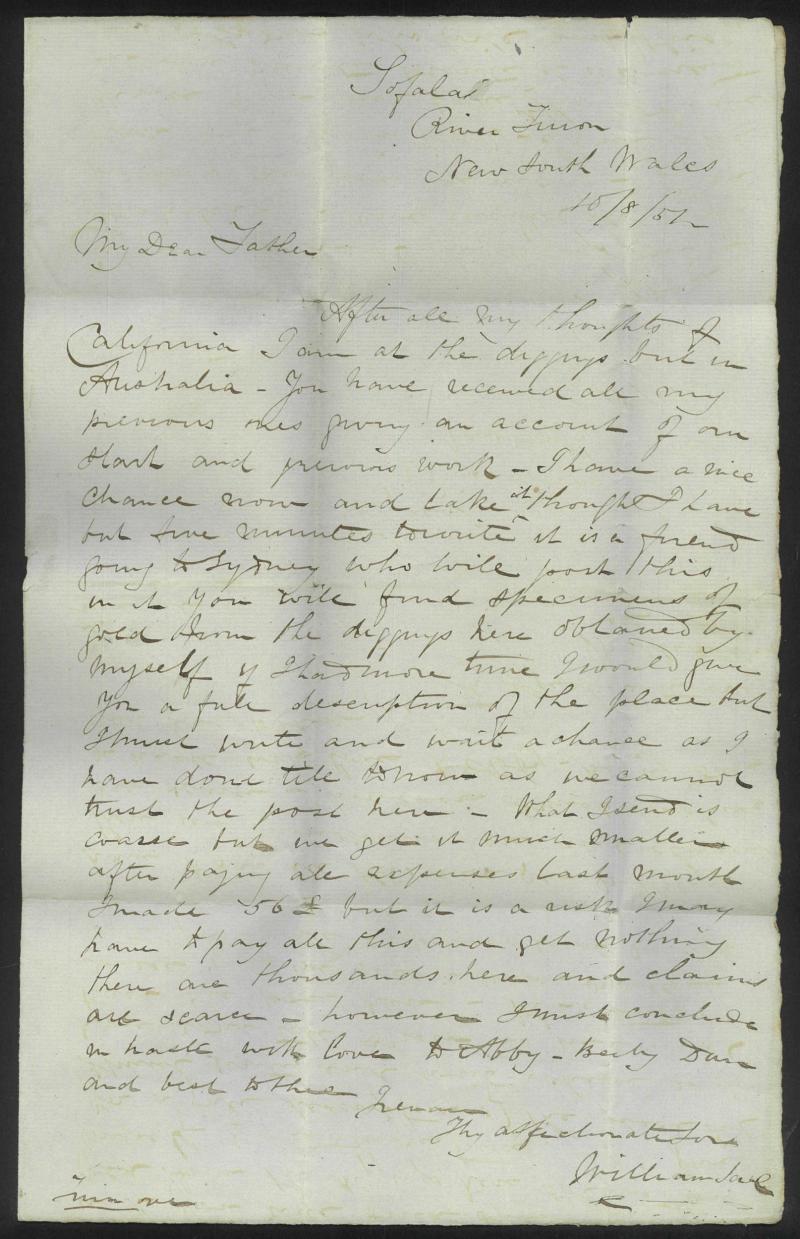 Sofala
River Turon
New South Wales
10/8/52
My Dear Father
After all my thoughts of
California I am at the diggings but in
Australia - You have received all my
previous ones giving an account of our
start and previous work - I have a nice
chance now and take it thought I have
but five minutes to write it is a friend
going to Sydney who will post this
in it You will find specimens of
gold from the diggings here obtained by
myself if I had more time I would give
You a full description of the place but
I must write and wait a chance as I
have done till to now as we cannot
trust the post here - What I send is
coarse but we get it much smaller
after paying all expenses last month
I made 56 £ but it is a risk I may
have to pay all this and get nothing
there are thousands here and claims
are scarce - however I must conclude
in haste with love to Abby - Beeby Dan
and best to thee
I remain
Thy affectionate Son
William
Turn over